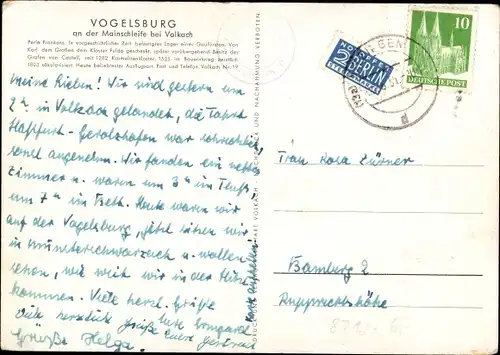 VOGELSBURG
an der Mainschleife bei Volkach
Perle Frankens. In vorgeschichtlicher Zeit befestigter Lager eines Gaufürsten. Von
Karl dem Großen dem Kloster Fulda geschenkt, später vorübergehend Besitz der
Grafen von Castell, seit 1282 Karmeliterkloster, 1525 im Bauernkrieg zerstört,
1803 säkularisiert. Heute beliebtester Ausflugsort. Post und Telefon Volkach Nr. 19
Meine Lieben! Wir sind gestern um
2 h in Volkach gelandet, die Fahrt
Haßfurt - Gerolzhofen war schrecklich,
sonst angenehm. Wir fanden ein nettes
Zimmer u. waren um 3 h im
um 7 h im Bett. Heute waren wir
auf der Vogelsburg, jetzt sitzen wir
in Münsterschwarzach u. wollen
sehen, wie weit wir in der Hitze
kommen. Viele herzl. Grüße
Eure Irmgard
viele herzliche Grüße Eure Gertrud
Grüße Helga.
Karte aufheben!
NACHDRUCK UND NACHAHMUNG VERBOTEN
NOTOPFER
2 BERLIN
STEUERMARKE
10
DEUTSCHE POST
Frau Rosa Zürner
Bamberg 2
Rupprechtshöhe